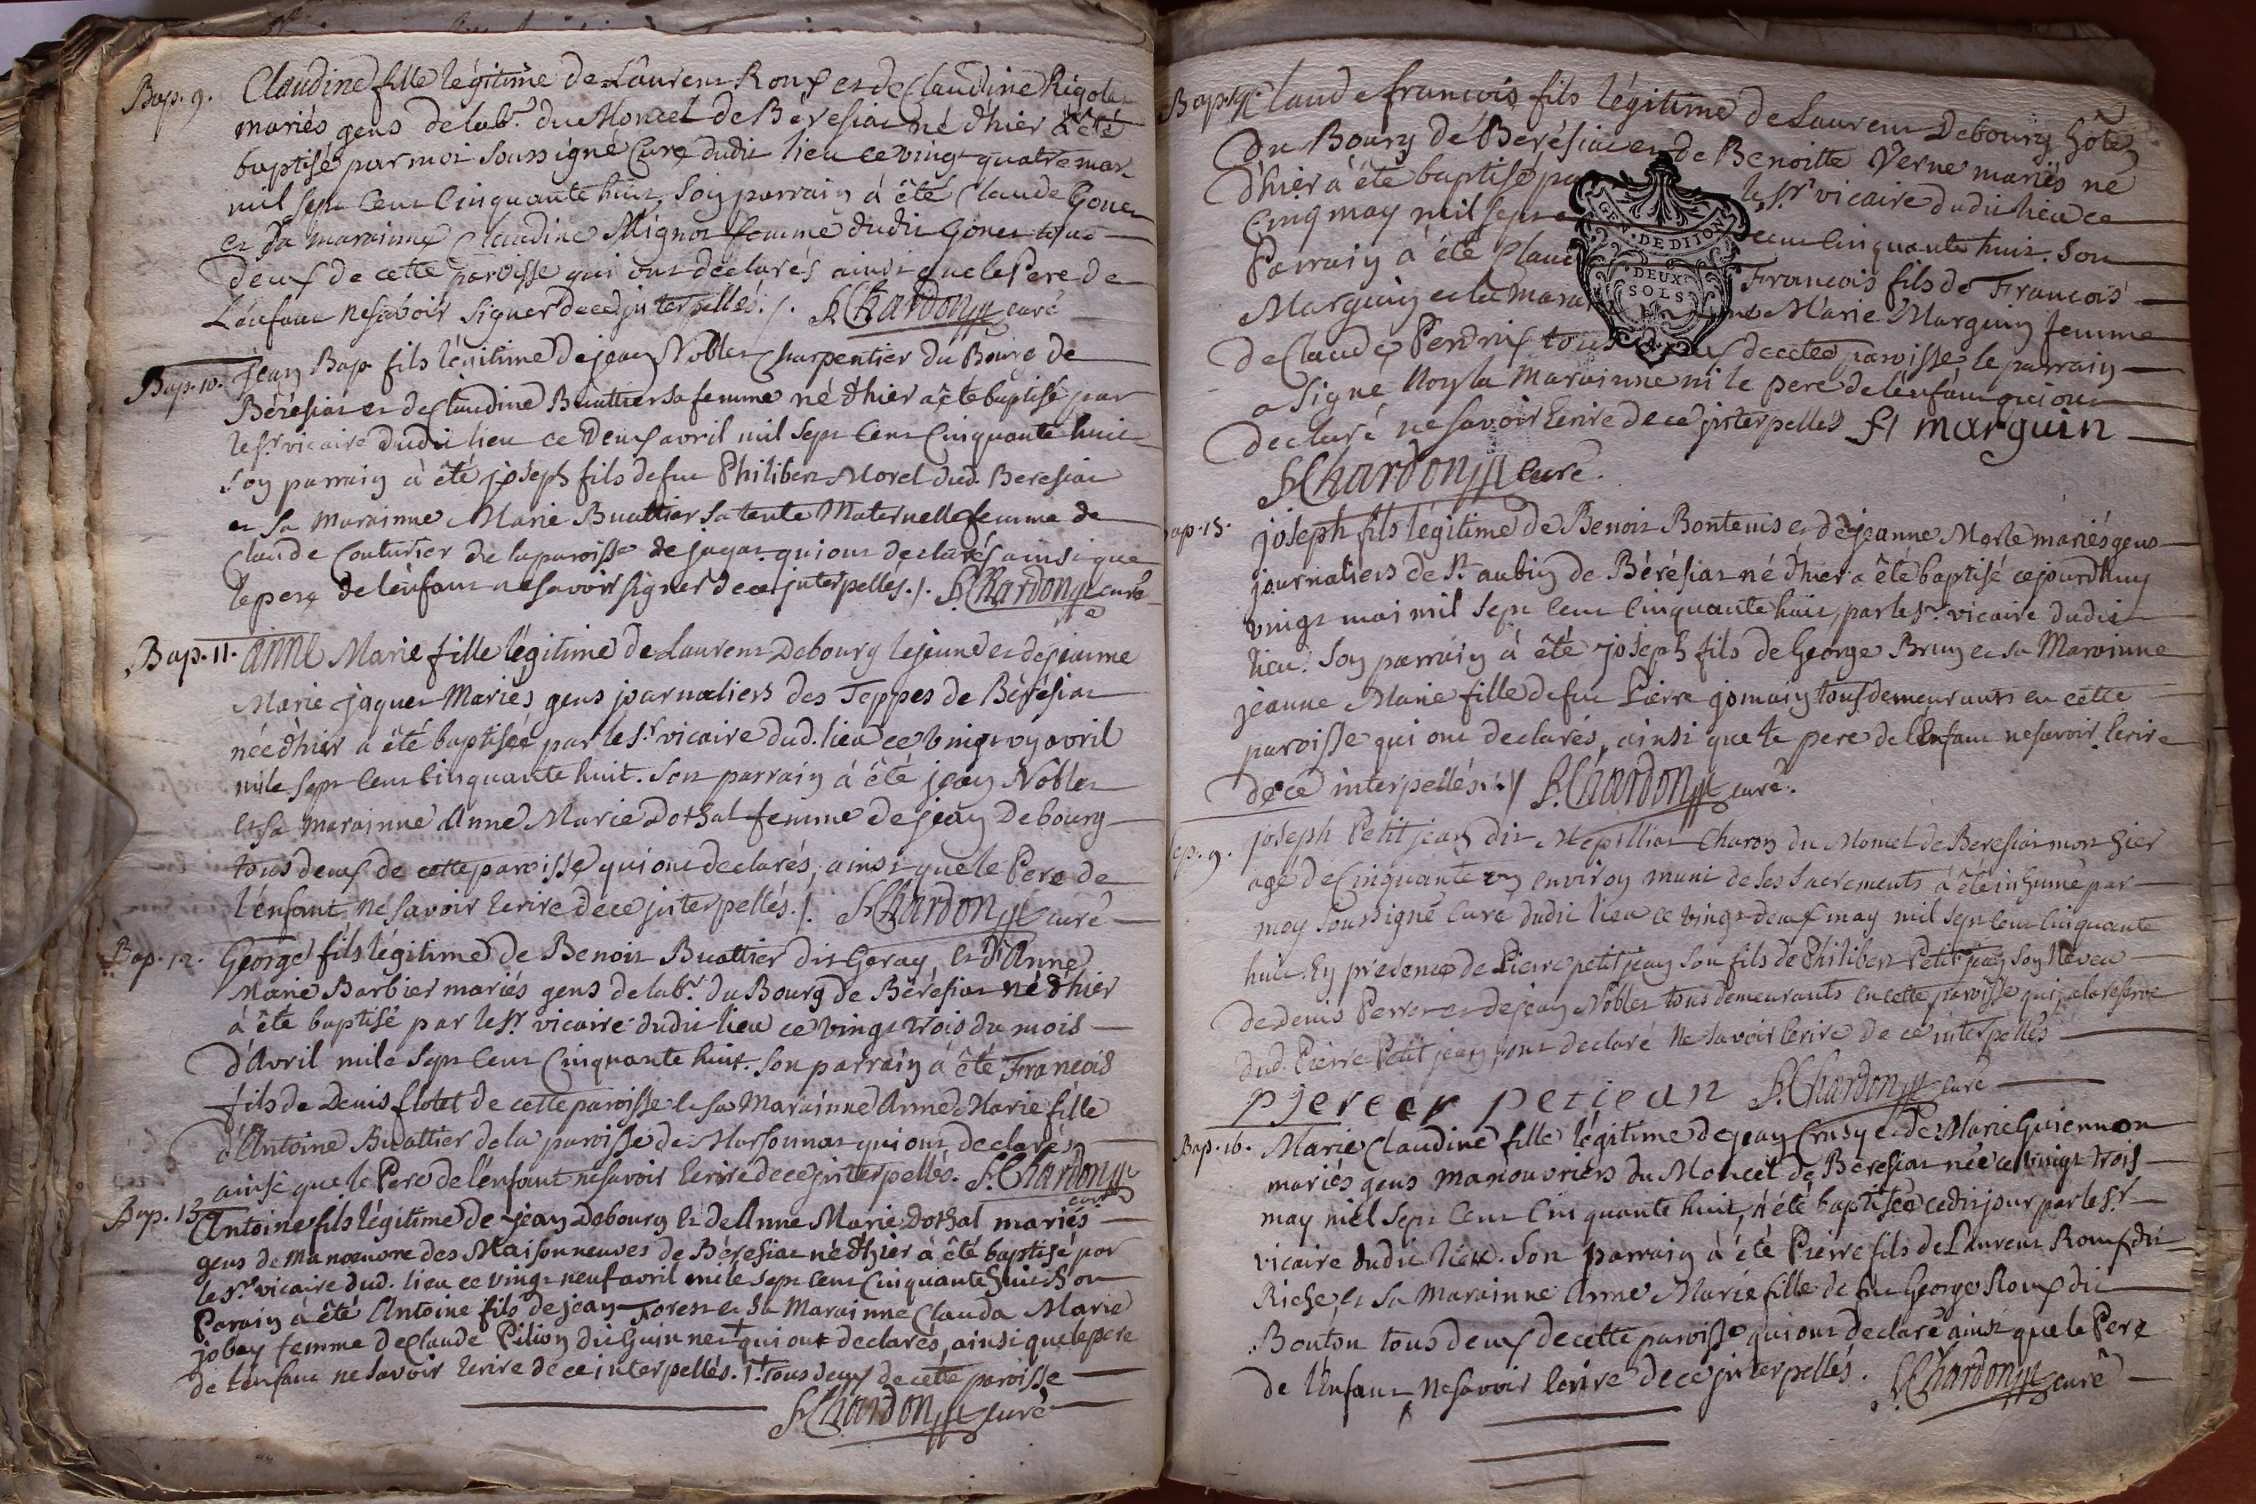 Bap. 9. Claudine fille légitime de Laurent Roux et de Claudine Rigolet
mariés gens de lab.r du Moncel de Béresiat né d'hier a été
baptisé par moi soussigné Curé dudit lieu ce vingt quatre mar
mil sept cent cinquante huit, Son parrain à été Claude Gonet
et Sa marainne Claudine Mignot femme dudit Gonet tous
deux de cette paroisse qui ont déclarés ainsi que le Pere de
L'enfant ne savoir signer de ce interpellés ./. F. Chardon curé
Bap. 10. Jean Bap. fils légitime de jean Noblet Charpentier du Bourg de
Béresiat et de Claudine Buattier sa femme né d'hier a été baptisé par
le Sr. vicaire dudit lieu ce deux avril mil sept cent cinquante huit
son parrain à été joseph fils de feu Philibert Morel dud. Beresiat
et Sa marainne Marie Buattier sa tente Maternelle femme de
Claude Couturier de la paroisse de jayat qui ont déclarés ainsi que
le pere de l'enfant ne savoir signer de ce interpelles ./. F. Chardon curé
Bap. 11. anne Marie fille légitime de Laurent Debourg le jeune et de jeanne
Marie jaquet Mariés gens journaliers des Teppes de Bérésiat
née d'hier a été baptisée par le Sr. vicaire dud. lieu ce vingt uy avril
mile sept cent cinquante huit. Son parrain à été jean Noblet
et sa marainne Anne Marie Dothal femme de jean Debourg
tous deux de cette paroisse qui ont declarés, ainsi que le Pere de
l'enfant ne savoir ecrire de ce interpellés ./. F. Chardon curé
Bap. 12. George fils légitime de Benoit Buattier dit Geray, et d'Anne
Marie Barbier mariés gens de lab.r du Bourg de Béresiat né d'hier
à été baptisé par le Sr. vicaire dudit lieu ce vingt trois du mois
d'Avril mile sept cent cinquante huit. Son parrain à été Francois
fils de Denis flotet de cette paroisse et sa Marainne Anne Marie fille
d'Antoine Buattier de la paroisse de Marsonnat qui ont declarés
ainsi que le Pere de l'enfant ne savoir ecrire de ce interpellés. F. Chardon
curé
Bap. 13 Antoine fils légitime de jean Debourg et de Anne Marie Dothal mariés
gens de manœuvre des Maisonneuves de Béresiat né d'hier à été baptisé par
le Sr. vicaire dud. lieu ce vingt neuf avril mile sept cent cinquante huit Son
Parain à été Antoine fils de jean Forest et Sa Marainne Clauda Marie
jobey femme de Claude Pilion dit Guinnet + qui ont declarés, ainsi que le pere
de l'enfant ne savoir ecrire de ce interpellés. / + tous deux de cette paroisse
F. Chardon curé
Bap. 14 Claude francois fils légitime de Laurent Debourg hôte
du Bourg de Berésiat et de Benoitte Verne mariés né
d'hier à été baptisé par le Sr. vicaire dudit lieu ce
cinq may mil sept cent cinquante huit. Son
Parrain à été Claude Francois fils de Francois
Marguin et la Marainne Marie Marguin femme
de Claude Perdrix tous deux de cette paroisse, le parrain
a signé Non la Marainne ni le pere de l'enfant qui ont
declaré ne savoir ecrire de ce interpellés f marguin
F. Chardon curé.
GEN. DE DIJON
DEUX
SOLS
Bap. 15. joseph fils légitime de Benoit Bontems et de jeanne Morle mariés gens
journaliers de St. aubin de Bérésiat né d'hier a été baptisé ce jourdhuy
vingt mai mil sept cent cinquante huit, par le Sr. vicaire dudit
lieu. Son parrain à été joseph fils de George Brun et sa Marainne
jeanne Marie fille de feu Pierre jomain tous demeurants en cette
paroisse qui ont declarés, ainsi que le pere de l'Enfant ne savoir ecrire
de ce interpellés ./. F. Chardon curé.
Sep. 9. joseph Petit jean dit Mepilliat Charon du Moncel de Beresiat mort hier
agé de cinquante en environ muni de ses Sacrements à été inhumé par
moy soussigné Curé dudit lieu ce vingt deux may mil sept cent cinquante
huit. En présence de Pierre petit jean Son fils de Philibert Petit jean Son Neveu
de Denis Perret et de jean Noblet tous demeurants en cette paroisse qui, a la reserve
dud. Pierre Petit jean, ont declaré ne savoir ecrire de ce interpellés
pierer petiean F. Chardon curé
Bap. 16. Marie Claudine fille légitime de jean Crusy et de Marie Guiennon
mariés gens manouvriers du Moncel de Béresiat née ce vingt trois
may mil sept cent cinquante huit, a été baptisée cedit jour par le Sr.
vicaire dudit lieu. Son parrain à été Pierre fils de Laurent Roux dit
Riche, et Sa Marainne Anne Marie fille de feu George Roux dit
Bouton tous deux de cette paroisse qui ont declaré ainsi que le Pere
de l'Enfant ne savoir ecrire de ce interpellés. F. Chardon curé